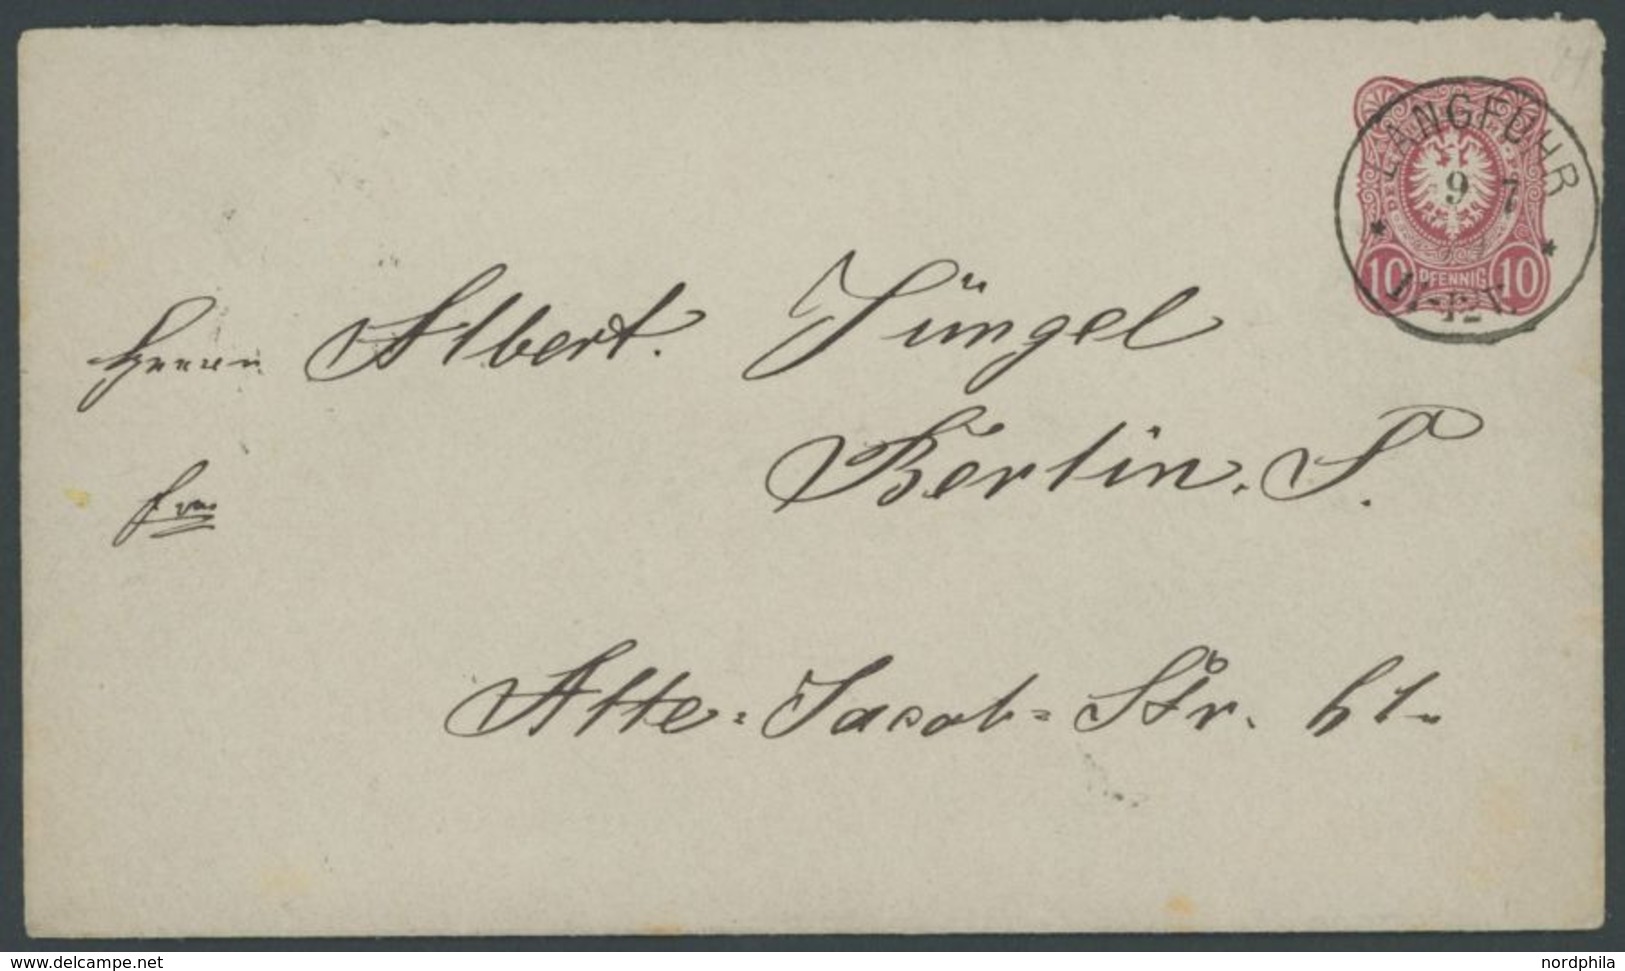 LANGFUHR
9 7
10 PFENNIG 10
Herrn Albert Jüngel
Berlin. S.
frco
Alte-Jacob-Str.
www.delcampe.net
nordphila